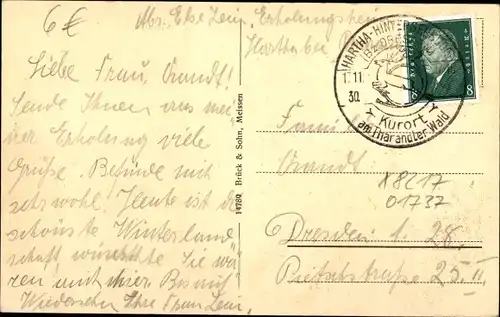 6€
Abs. Else Leni, Erholungsheim
Hartha bei
Liebe Frau Brandt!
Sende Ihnen aus mei
ner Erholung viele
Grüße. Befinde mich
sehr wohl! Heute ist die
schönste Winterland
schaft wünschte Sie wä
ren mit hier. Bis auf
Wiedersehn Ihre Frau Leni.
14789 Brück & Sohn, Meissen
HARTHA-HINTER
1. 11
30
Kurort
am Tharandter Wald
Deutsches Reich
8 8
Familie
Brandt
X8L17
01737
Dresden 1. 28.
25 II